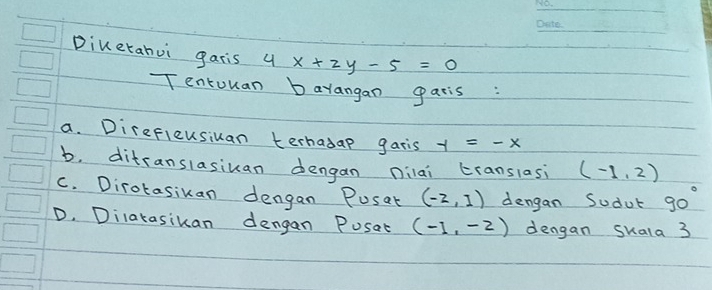 No.
Date
Diketahui garis 4x + 2y - 5 = 0
Tentukan bayangan garis :
a. Direfleksikan terhadap garis y = -x
b. ditranslasikan dengan nilai translasi (-1, 2)
c. Dirotasikan dengan Pusat (-2, 1) dengan Sudut 90°
D. Dilatasikan dengan Pusat (-1, -2) dengan skala 3